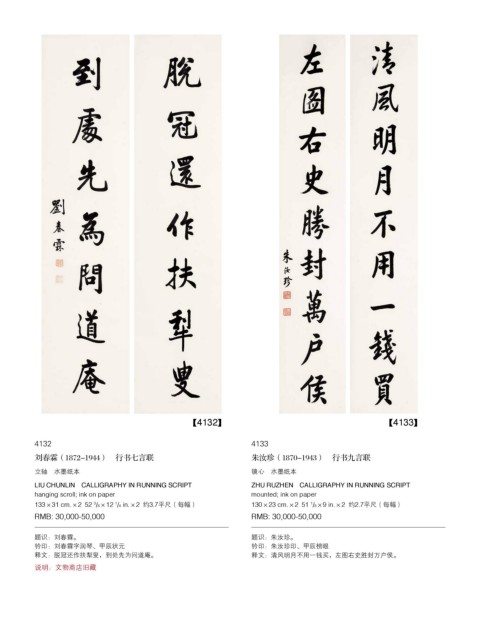 脫冠還作扶犁叟
到處先為問道庵
劉春霖
清風明月不用一錢買
左圖右史勝封萬户侯
朱汝珍
【4132】
【4133】
4132
刘春霖（1872-1944） 行书七言联
立轴 水墨纸本
LIU CHUNLIN CALLIGRAPHY IN RUNNING SCRIPT
hanging scroll; ink on paper
RMB: 30,000-50,000
题识：刘春霖。
钤印：刘春霖字润琴、甲辰状元
释文：脱冠还作扶犁叟，到处先为问道庵。
说明：文物商店旧藏
4133
朱汝珍（1870-1943） 行书九言联
镜心 水墨纸本
ZHU RUZHEN CALLIGRAPHY IN RUNNING SCRIPT
mounted; ink on paper
RMB: 30,000-50,000
题识：朱汝珍。
钤印：朱汝珍印、甲辰榜眼
释文：清风明月不用一钱买，左图右史胜封万户侯。